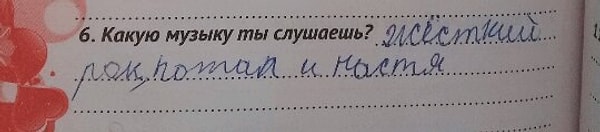 6. Какую музыку ты слушаешь? жёсткий
рок, потап и настя